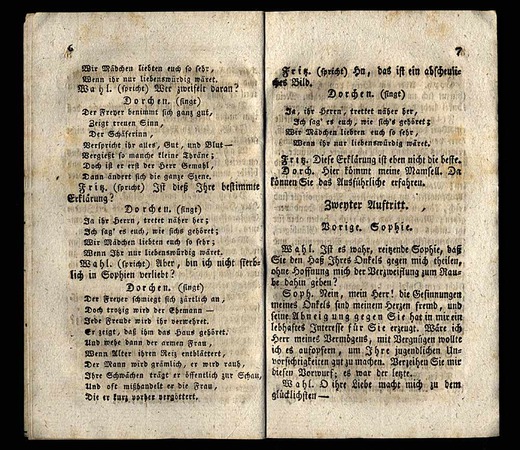 6
Wir Mädchen liebten euch so sehr,
Wenn ihr nur liebenswürdig wäret.
Wahl. (spricht) Wer zweifelt daran?
Dorchen. (singt)
Der Freyer benimmt sich ganz gut,
Zeigt treuen Sinn,
Der Schäferinn,
Verspricht ihr alles, Gut, und Blut—
Vergießt so manche kleine Thräne;
Doch ist er erst der Herr Gemahl
Dann ändert sich die ganze Szene.
Fritz. (spricht) Ist dieß Ihre bestimmte
Erklärung?
Dorchen. (singt)
Ja ihr Herrn, trettet näher her;
Ich sag' es euch, wie sichs gehört;
Wir Mädchen liebten euch so sehr;
Wenn Ihr nur liebenswürdig wäret.
Wahl. (spricht) Aber, bin ich nicht sterb-
lich in Sophien verliebt?
Dorchen. (singt)
Der Freyer schmiegt sich zärtlich an,
Doch trotzig wird der Ehemann—
Jede Freude wird ihr verwehret.
Er zeigt, daß ihm das Haus gehöret.
Und wehe dann der armen Frau,
Wenn Alter ihren Reiz entblättert,
Der Mann wird grämlich, er wird rauh,
Ihre Schwächen trägt er öffentlich zur Schau,
Und oft mißhandelt er die Frau,
Die er kurz vorher vergöttert.
7
Fritz. (spricht) Hu, das ist ein abscheuli-
ches Bild.
Dorchen. (singt)
Ja, ihr Herrn, trettet näher her,
Ich sag' es euch, wie sich's gehöret;
Wir Mädchen liebten euch so sehr,
Wenn ihr nur liebenswürdig wäret.
Fritz. Diese Erklärung ist eben nicht die beste.
Dorch. Hier kömmt meine Mamsell. Da
können Sie das Ausführliche erfahren.
Zweyter Auftritt.
Vorige. Sophie.
Wahl. Ist es wahr, reitzende Sophie, daß
Sie den Haß Ihres Onkels gegen mich theilen,
ohne Hoffnung mich der Verzweiflung zum Rau-
be dahin geben?
Soph. Nein, mein Herr! die Gesinnungen
meines Onkels sind meinem Herzen fremd, und
seine Abneigung gegen Sie hat in mir ein
lebhaftes Interesse für Sie erzeugt. Wäre ich
Herr meines Vermögens, mit Vergnügen wollte
ich es aufopfern, um Ihre jugendlichen Un-
vorsichtigkeiten gut zu machen. Verzeihen Sie mir
diesen Vorwurf; es war der letzte.
Wahl. O ihre Liebe macht mich zu dem
glücklichsten—